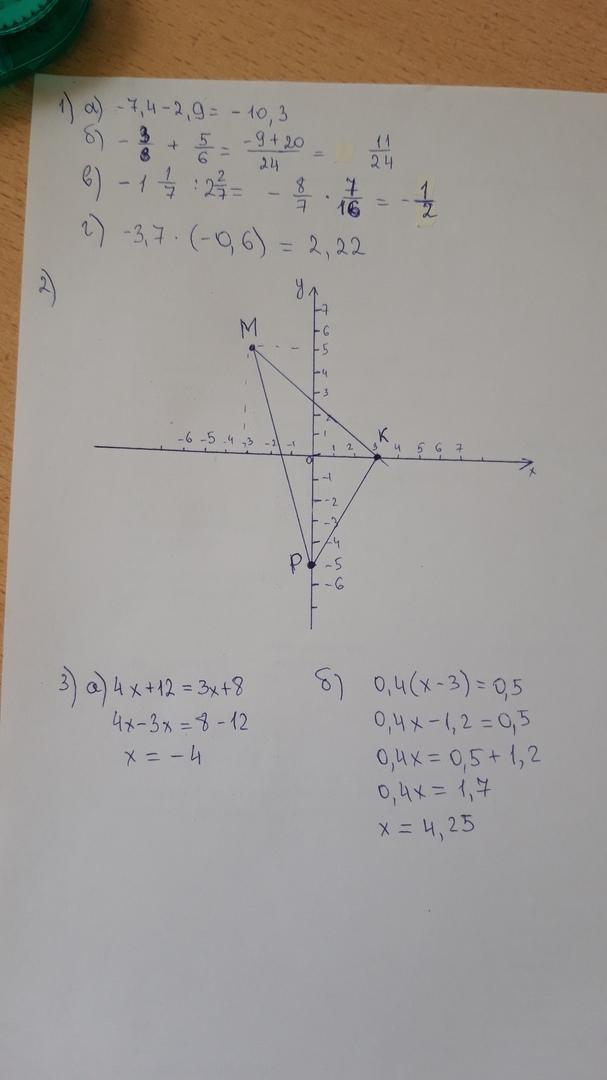 1) а) -7,4-2,9= -10,3
б) - 3/8 + 5/6 = (-9+20)/24 = 11/24
в) -1 1/7 : 2 2/7 = - 8/7 · 7/16 = - 1/2
г) -3,7 · (-0,6) = 2,22
2)
y
7
M
6
5
4
3
2
1
K
-6 -5 -4 -3 -2 -1 0 1 2 3 4 5 6 7
x
-1
-2
-3
-4
P -5
-6
3) а) 4x+12=3x+8
4x-3x=8-12
x = -4
б) 0,4(x-3)=0,5
0,4x-1,2=0,5
0,4x=0,5+1,2
0,4x= 1,7
x = 4,25